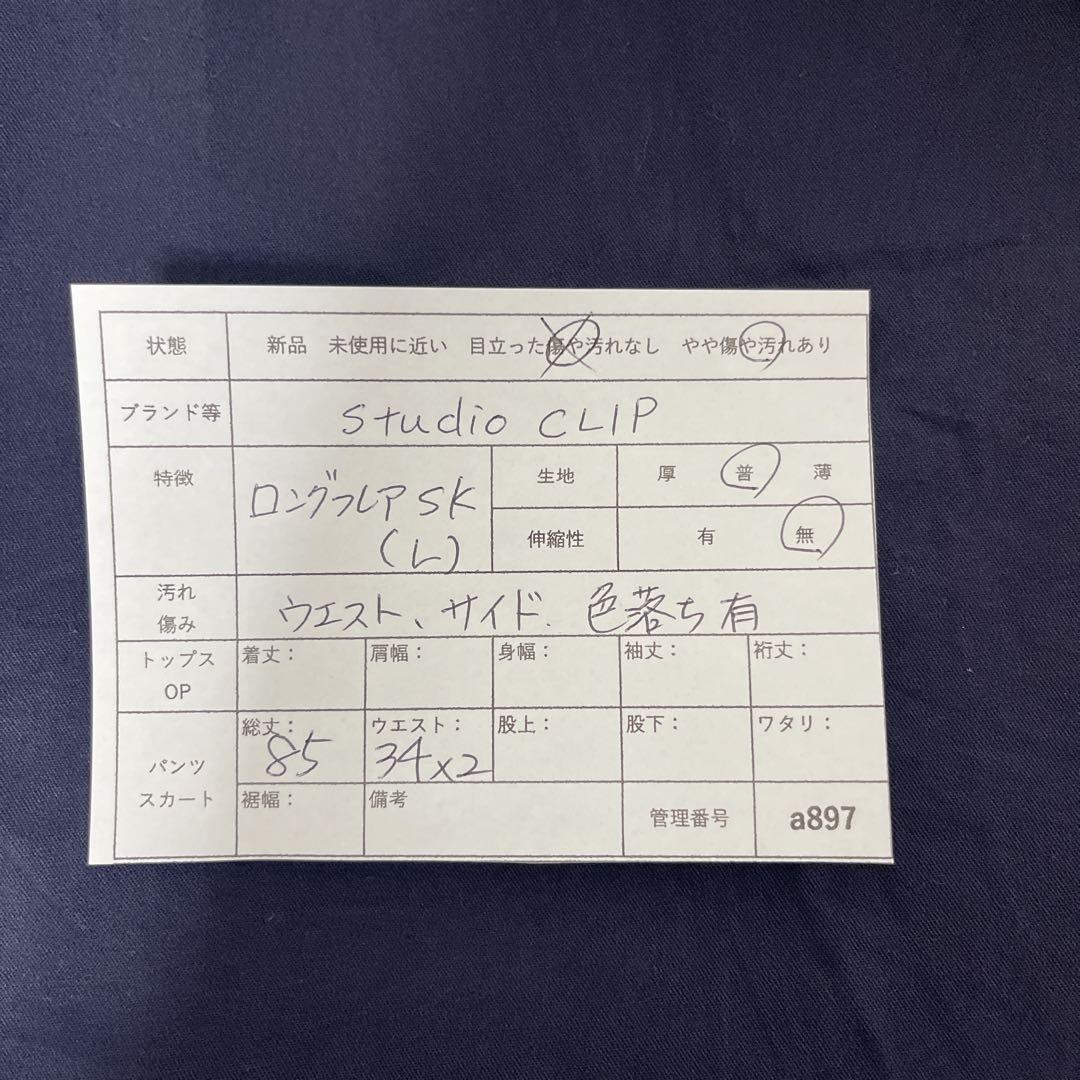 状態 新品 未使用に近い 目立った傷や汚れなし やや傷や汚れあり
ブランド等 studio CLIP
特徴 ロングフレアSK
(L)
生地 厚 普 薄
伸縮性 有 無
汚れ
傷み
ウエスト、サイド、色落ち有
トップス
OP
着丈： 肩幅： 身幅： 袖丈： 裄丈：
パンツ
スカート
総丈： ウエスト： 股上： 股下： ワタリ：
85 34×2
裾幅： 備考 管理番号 a897